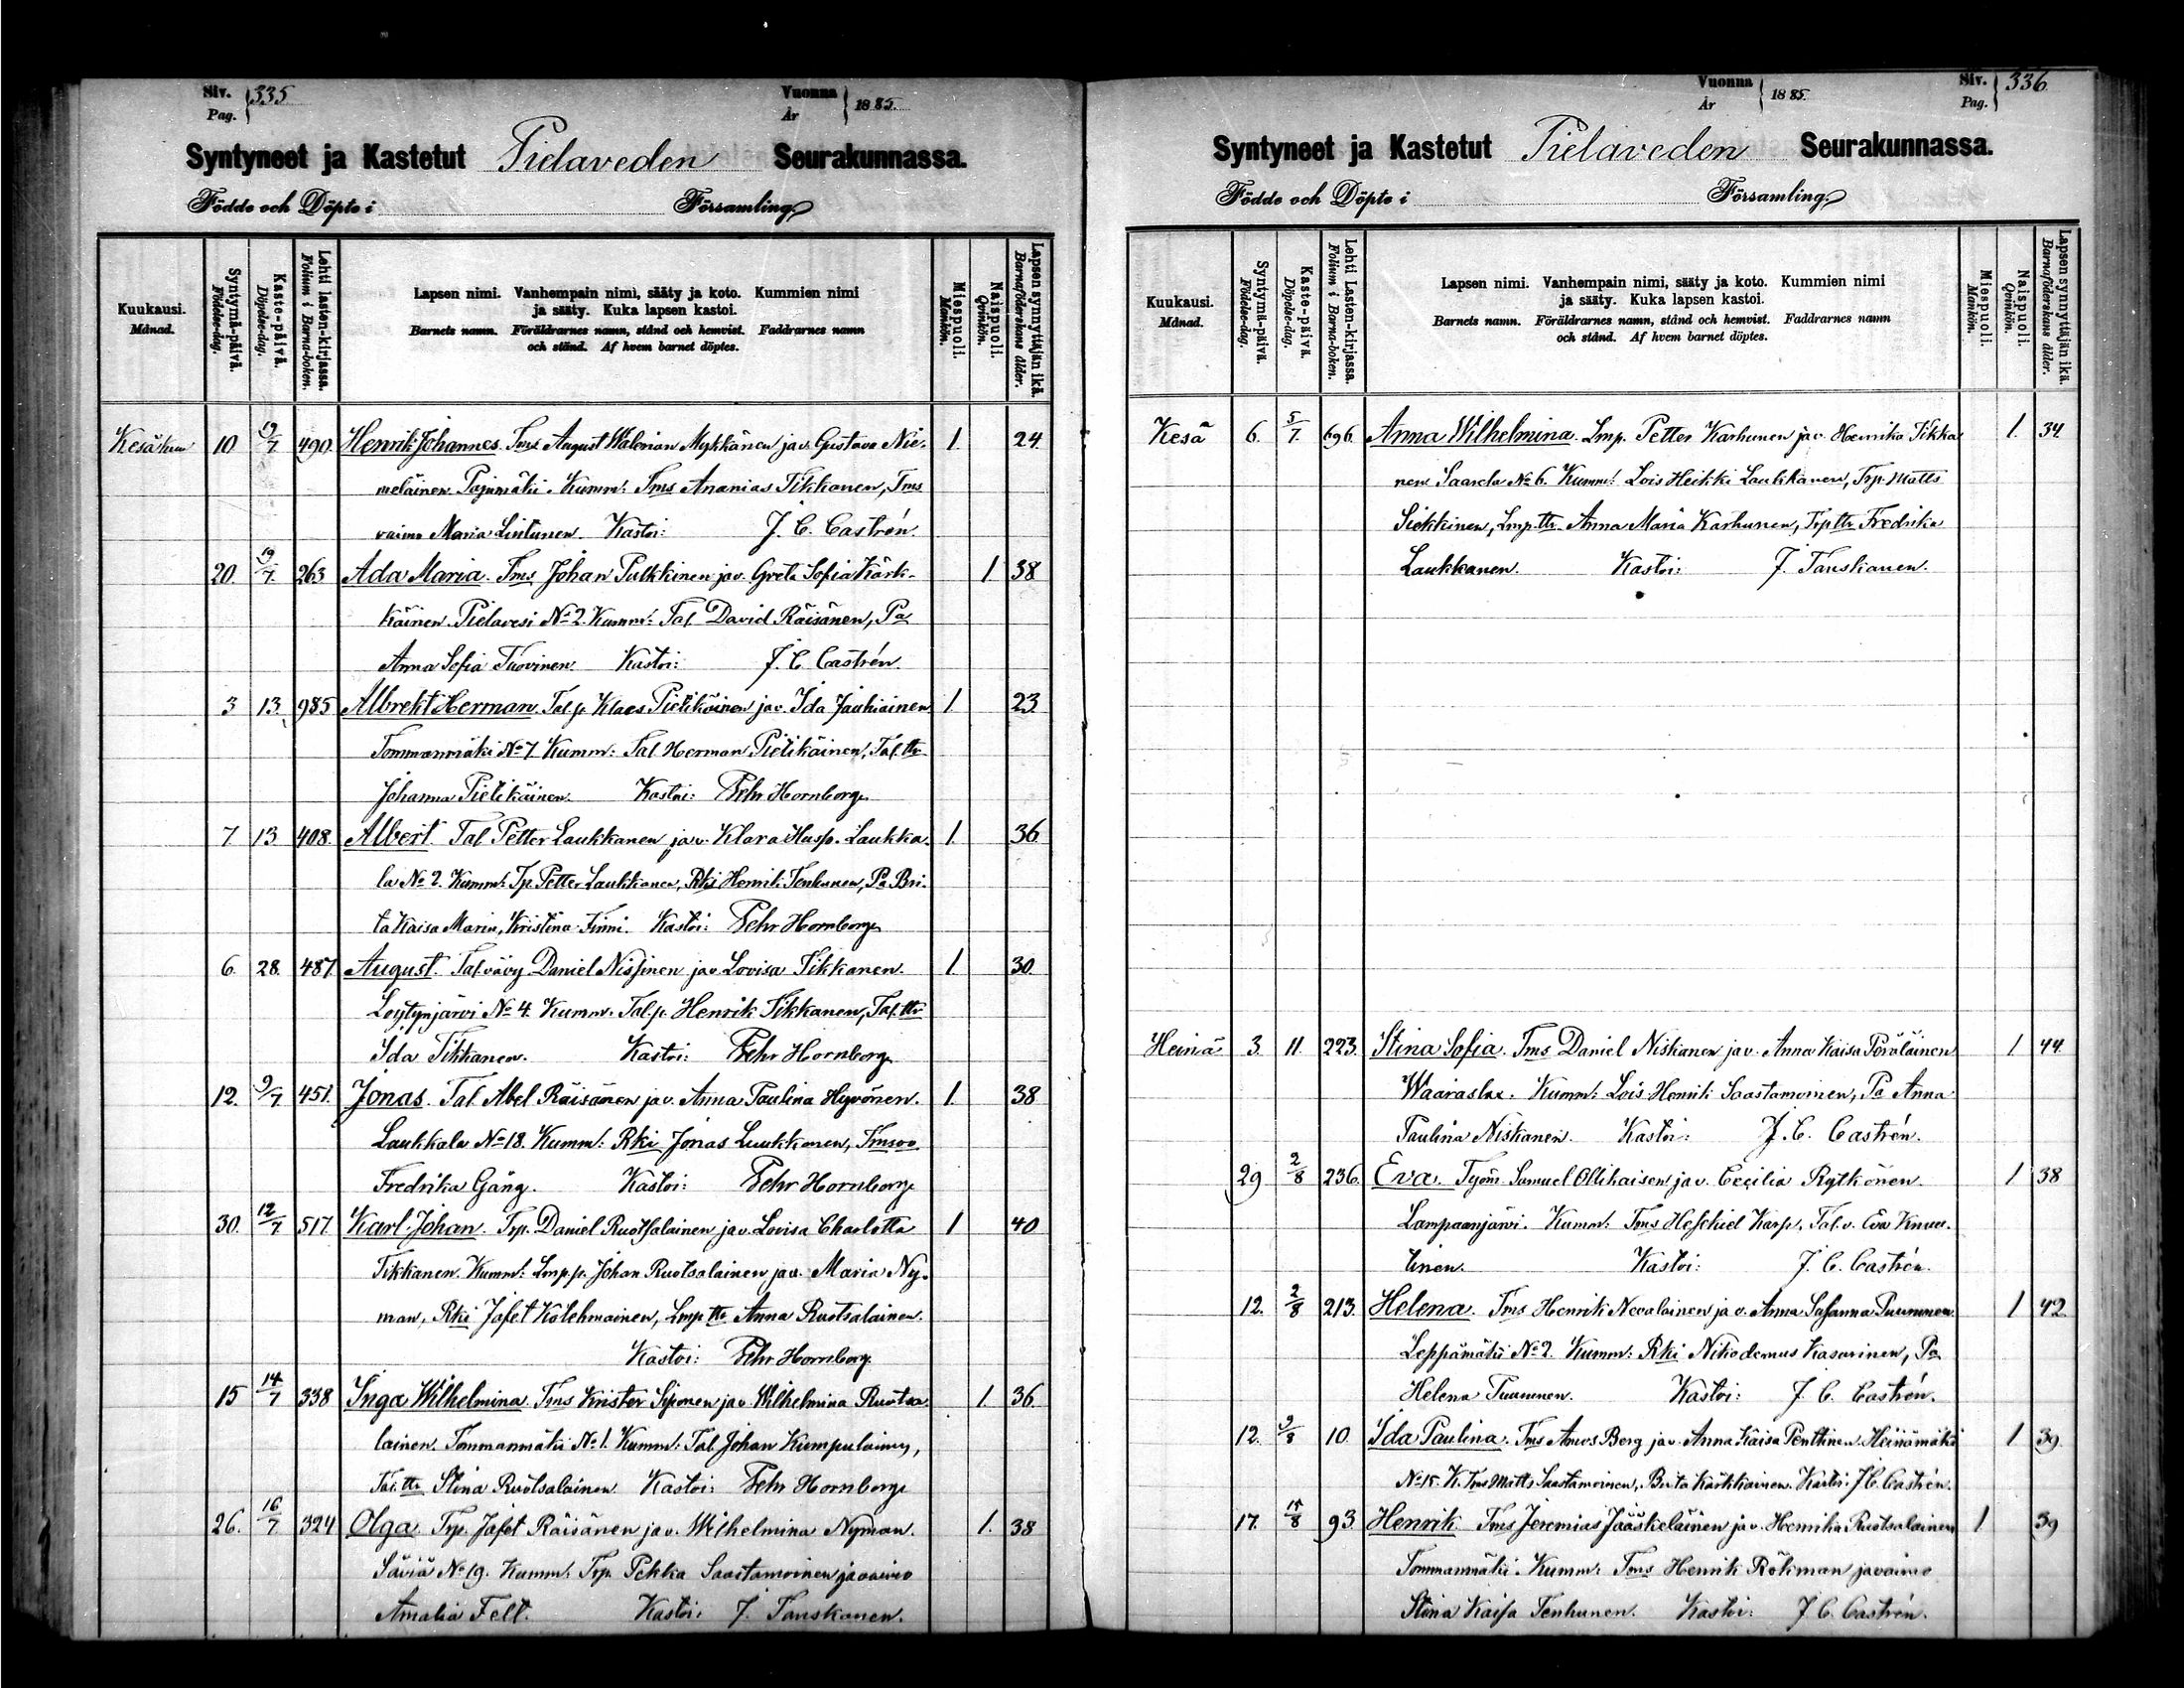 Siv. 335
Pag.
Vuonna 1885.
År
Syntyneet ja Kastetut Pielaveden Seurakunnassa.
Födde och Döpte i Församling.
Kuukausi.
Månad.
Syntymä-päivä.
Födelse-dag.
Kaste-päivä.
Döpelse-dag.
Lehti lasten-kirjassa.
Folium i Barna-boken.
Lapsen nimi. Vanhempain nimi, sääty ja koto. Kummien nimi
ja sääty. Kuka lapsen kastoi.
Barnets namn. Föräldrarnes namn, stånd och hemvist. Faddrarnes namn
och stånd. Af hvem barnet döptes.
Miespuoli.
Mankön.
Naispuoli.
Qvinkön.
Lapsen synnyttäjän ikä.
Barnaföderskans ålder.
Kesäkuu 10 12/7 490. Henrik Johannes. Tms August Walerian Mykkänen ja v. Gustava Nie- 1. 24.
meläinen Pajumäki. Kumm: Tms Ananias Tikkanen, Tms
vaimo Maria Lintunen. Kastoi: J. C. Castrén.
20. 19/7. 263 Ada Maria. Tms Johan Pulkkinen ja v. Greta Sofia Kärk- 1 38
käinen. Pielavesi No 2. Kumm: Tal. David Räisänen, Pa
Anna Sofia Tuovinen. Kastoi: J. C. Castrén.
3 13. 985 Albrekt Herman. Tal.p. Klaes Pietikäinen ja v. Ida Jauhiainen 1. 23.
Tommanmäki No 7. Kumm: Tal. Herman Pietikäinen, Tal. ttr
Johanna Pietikäinen. Kastoi: Pehr Hornborg
7 13 408. Albert. Tal. Petter Laukkanen ja v. Klara Husp. Laukka- 1. 36
la No 2. Kumm: Tp. Petter Laukkanen, Rki Henrik Tenhunen, Pa Bri-
ta Kaisa Maria, Kristina Finni. Kastoi: Pehr Hornborg
6. 28. 487. August. Tal.vävy Daniel Nissinen ja v. Lovisa Tikkanen. 1. 30.
Löytynjärvi No 4. Kumm: Tal.p. Henrik Tikkanen, Tal. ttr
Ida Tikkanen. Kastoi: Pehr Hornborg
12. 9/7 451. Jonas. Tal. Abel Räisänen ja v. Anna Paulina Hyvönen. 1. 38
Laukkala No 18. Kumm: Rki Jonas Luukkonen, Tms vo
Fredrika Gång. Kastoi: Pehr Hornborg
30. 12/7 517. Karl Johan. Trp. Daniel Ruotsalainen ja v. Lovisa Charlotta 1 40
Tikkanen. Kumm: Lmp.p. Johan Ruotsalainen ja v. Maria Ny-
man, Rki Jafet Kolehmainen, Lmp ttr Anna Ruotsalainen.
Kastoi: Pehr Hornborg
15 14/7 338 Inga Wilhelmina. Tms Krister Siponen ja v. Wilhelmina Ruotsa- 1. 36.
lainen. Tommanmäki No 1. Kumm: Tal. Johan Kumpulainen,
Tal. ttr Stina Ruotsalainen Kastoi: Pehr Hornborg
26. 16/7 324 Olga Trp. Jafet Räisänen ja v. Wilhelmina Nyman. 1. 38
Säviä No 19. Kumm: Trp. Pekka Saastamoinen ja vaimo
Amalia Felt. Kastoi: J. Tanskanen.
Vuonna 1885.
År
Siv. 336
Pag.
Syntyneet ja Kastetut Pielaveden Seurakunnassa.
Födde och Döpte i Församling.
Kuukausi.
Månad.
Syntymä-päivä.
Födelse-dag.
Kaste-päivä.
Döpelse-dag.
Lehti Lasten-kirjassa.
Folium i Barna-boken.
Lapsen nimi. Vanhempain nimi, sääty ja koto. Kummien nimi
ja sääty. Kuka lapsen kastoi.
Barnets namn. Föräldrarnes namn, stånd och hemvist. Faddrarnes namn
och stånd. Af hvem barnet döptes.
Miespuoli.
Mankön.
Naispuoli.
Qvinkön.
Lapsen synnyttäjän ikä.
Barnaföderskans ålder.
Kesä 6. 5/7. 696. Anna Wilhelmina. Lmp. Petter Karhunen ja v. Henrika Tikka- 1. 34
nen Saarela No 6. Kumm: Lois Heikki Laukkanen, Trp. Matts
Siekkinen, Lmp. ttr. Anna Maria Karhunen, Trp ttr Fredrika
Laukkanen. Kastoi: J. Tanskanen.
Heinä 3. 11. 223. Stina Sofia. Tms Daniel Niskanen ja v. Anna Kaisa Pöröläinen 1 44
Waaraslax. Kumm: Lois Henrik Saastamoinen, Pa Anna
Paulina Niskanen. Kastoi: J. C. Castrén.
29 2/8 236. Eva. Työm. Samuel Ollikaisen ja v. Cecilia Rytkönen. 1 38
Lampaanjärvi. Kumm: Tms Heskiel Karp, Tal. v. Eva Knuu-
tinen. Kastoi: J. C. Castrén.
12. 2/8 213. Helena. Tms Henrik Nevalainen ja v. Anna Susanna Tuununen 1 42
Leppämäki No 2. Kumm: Rki Nikodemus Kasurinen, Pa
Helena Tuununen. Kastoi: J. C. Castrén.
12. 9/8 10. Ida Paulina. Tms Amos Berg ja v. Anna Kaisa Penttinen. Heinämäki 1 39.
No 15. K. Tms Matts Saastamoinen, Brita Kärkkäinen. Kastoi: J. C. Castrén.
17. 15/8 93. Henrik. Tms Jeremias Jääskeläinen ja v. Henrika Ruotsalainen 1 39
Tommanmäki. Kumm: Tms Henrik Rökman ja vaimo
Stina Kaisa Tenhunen. Kastoi: J. C. Castrén.